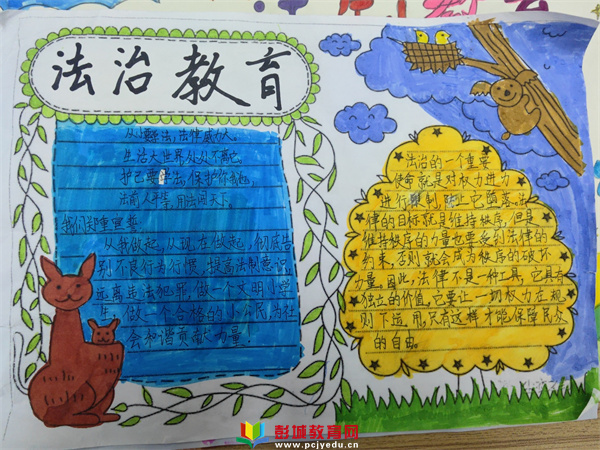 法治教育
从小要学法,法律威力大。
生活大世界处处不离它。
护己要学法,保护你我他,
法前人平等,用法闯天下。
我们郑重宣誓
从我做起,从现在做起,彻底告
别不良行为行惯,提高法制意识
远离违法犯罪,做一个文明小学
生,做一个合格的小公民,为社
会和谐贡献力量!
法治的一个重要
使命就是对权力进为
进行限制,防止它堕落,法
律的目标就是维持秩序,但是
维持秩序的力量也要受到法律的
约束,否则就会成为秩序的破坏
力量。因此,法律不是一种工具,它具有
独立的价值,它要让一切权力在规
则下运用,只有这样才能保障民众
的自由。
彭城教育网
www.pcjyedu.cn